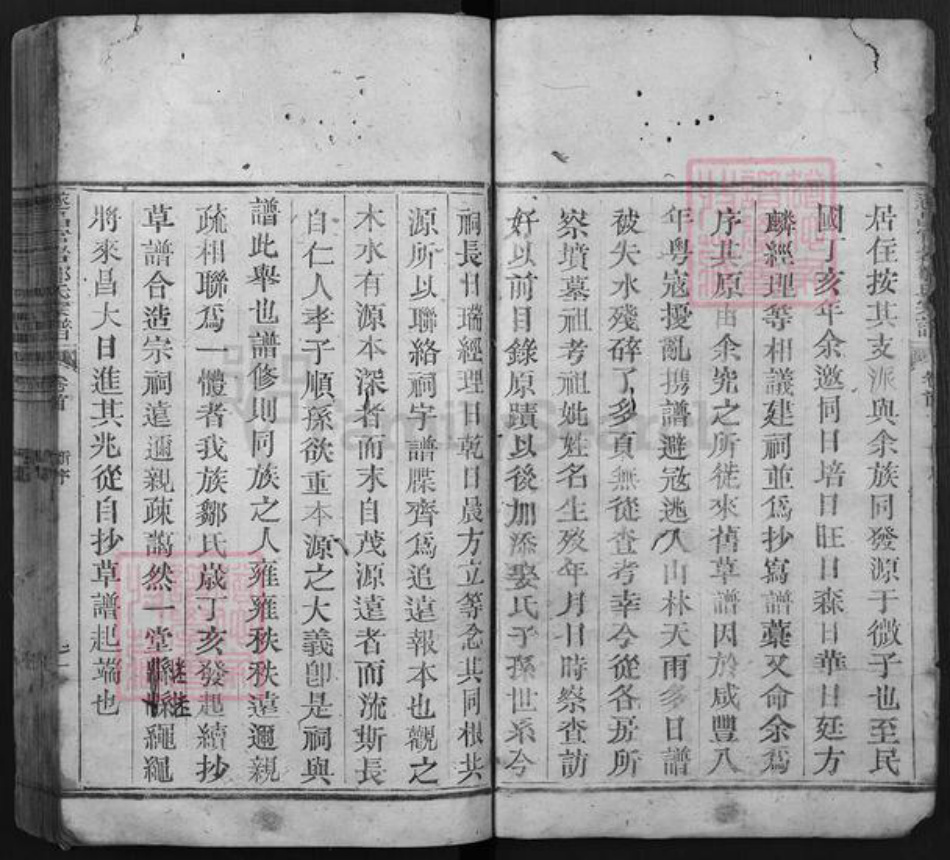 居住按其支派與余族同發源于微子也至民
國丁亥年余邀同日培日旺日森日華日廷方
麟經理等相議建祠並為抄寫譜藁又命余為
序其原由余究之所從來舊草譜因於咸豐八
年粵寇擾亂攜譜避寇逃入山林天雨多日譜
被失水殘碎了多頁無從查考幸今從各房所
察墳墓祖考祖妣姓名生歿年月日時察查訪
好以前目錄原蹟以後加添娶氏子孫世系今
祠長日瑞經理日乾日晨方立等念其同根共
源所以聯絡祠宇譜牒齊為追遠報本也觀之
木水有源本深者而末自茂源遠者而流斯長
自仁人孝子順孫欲重本源之大義卽是祠與
譜此舉也譜修則同族之人雍雍秩秩遠邇親
疏相聯為一體者我族鄒氏歲丁亥發起續抄
草譜合造宗祠遠邇親疎藹然一堂繼繼繩繩
將來昌大日進其兆從自抄草譜起端也
鄒氏宗譜
卷首
新序